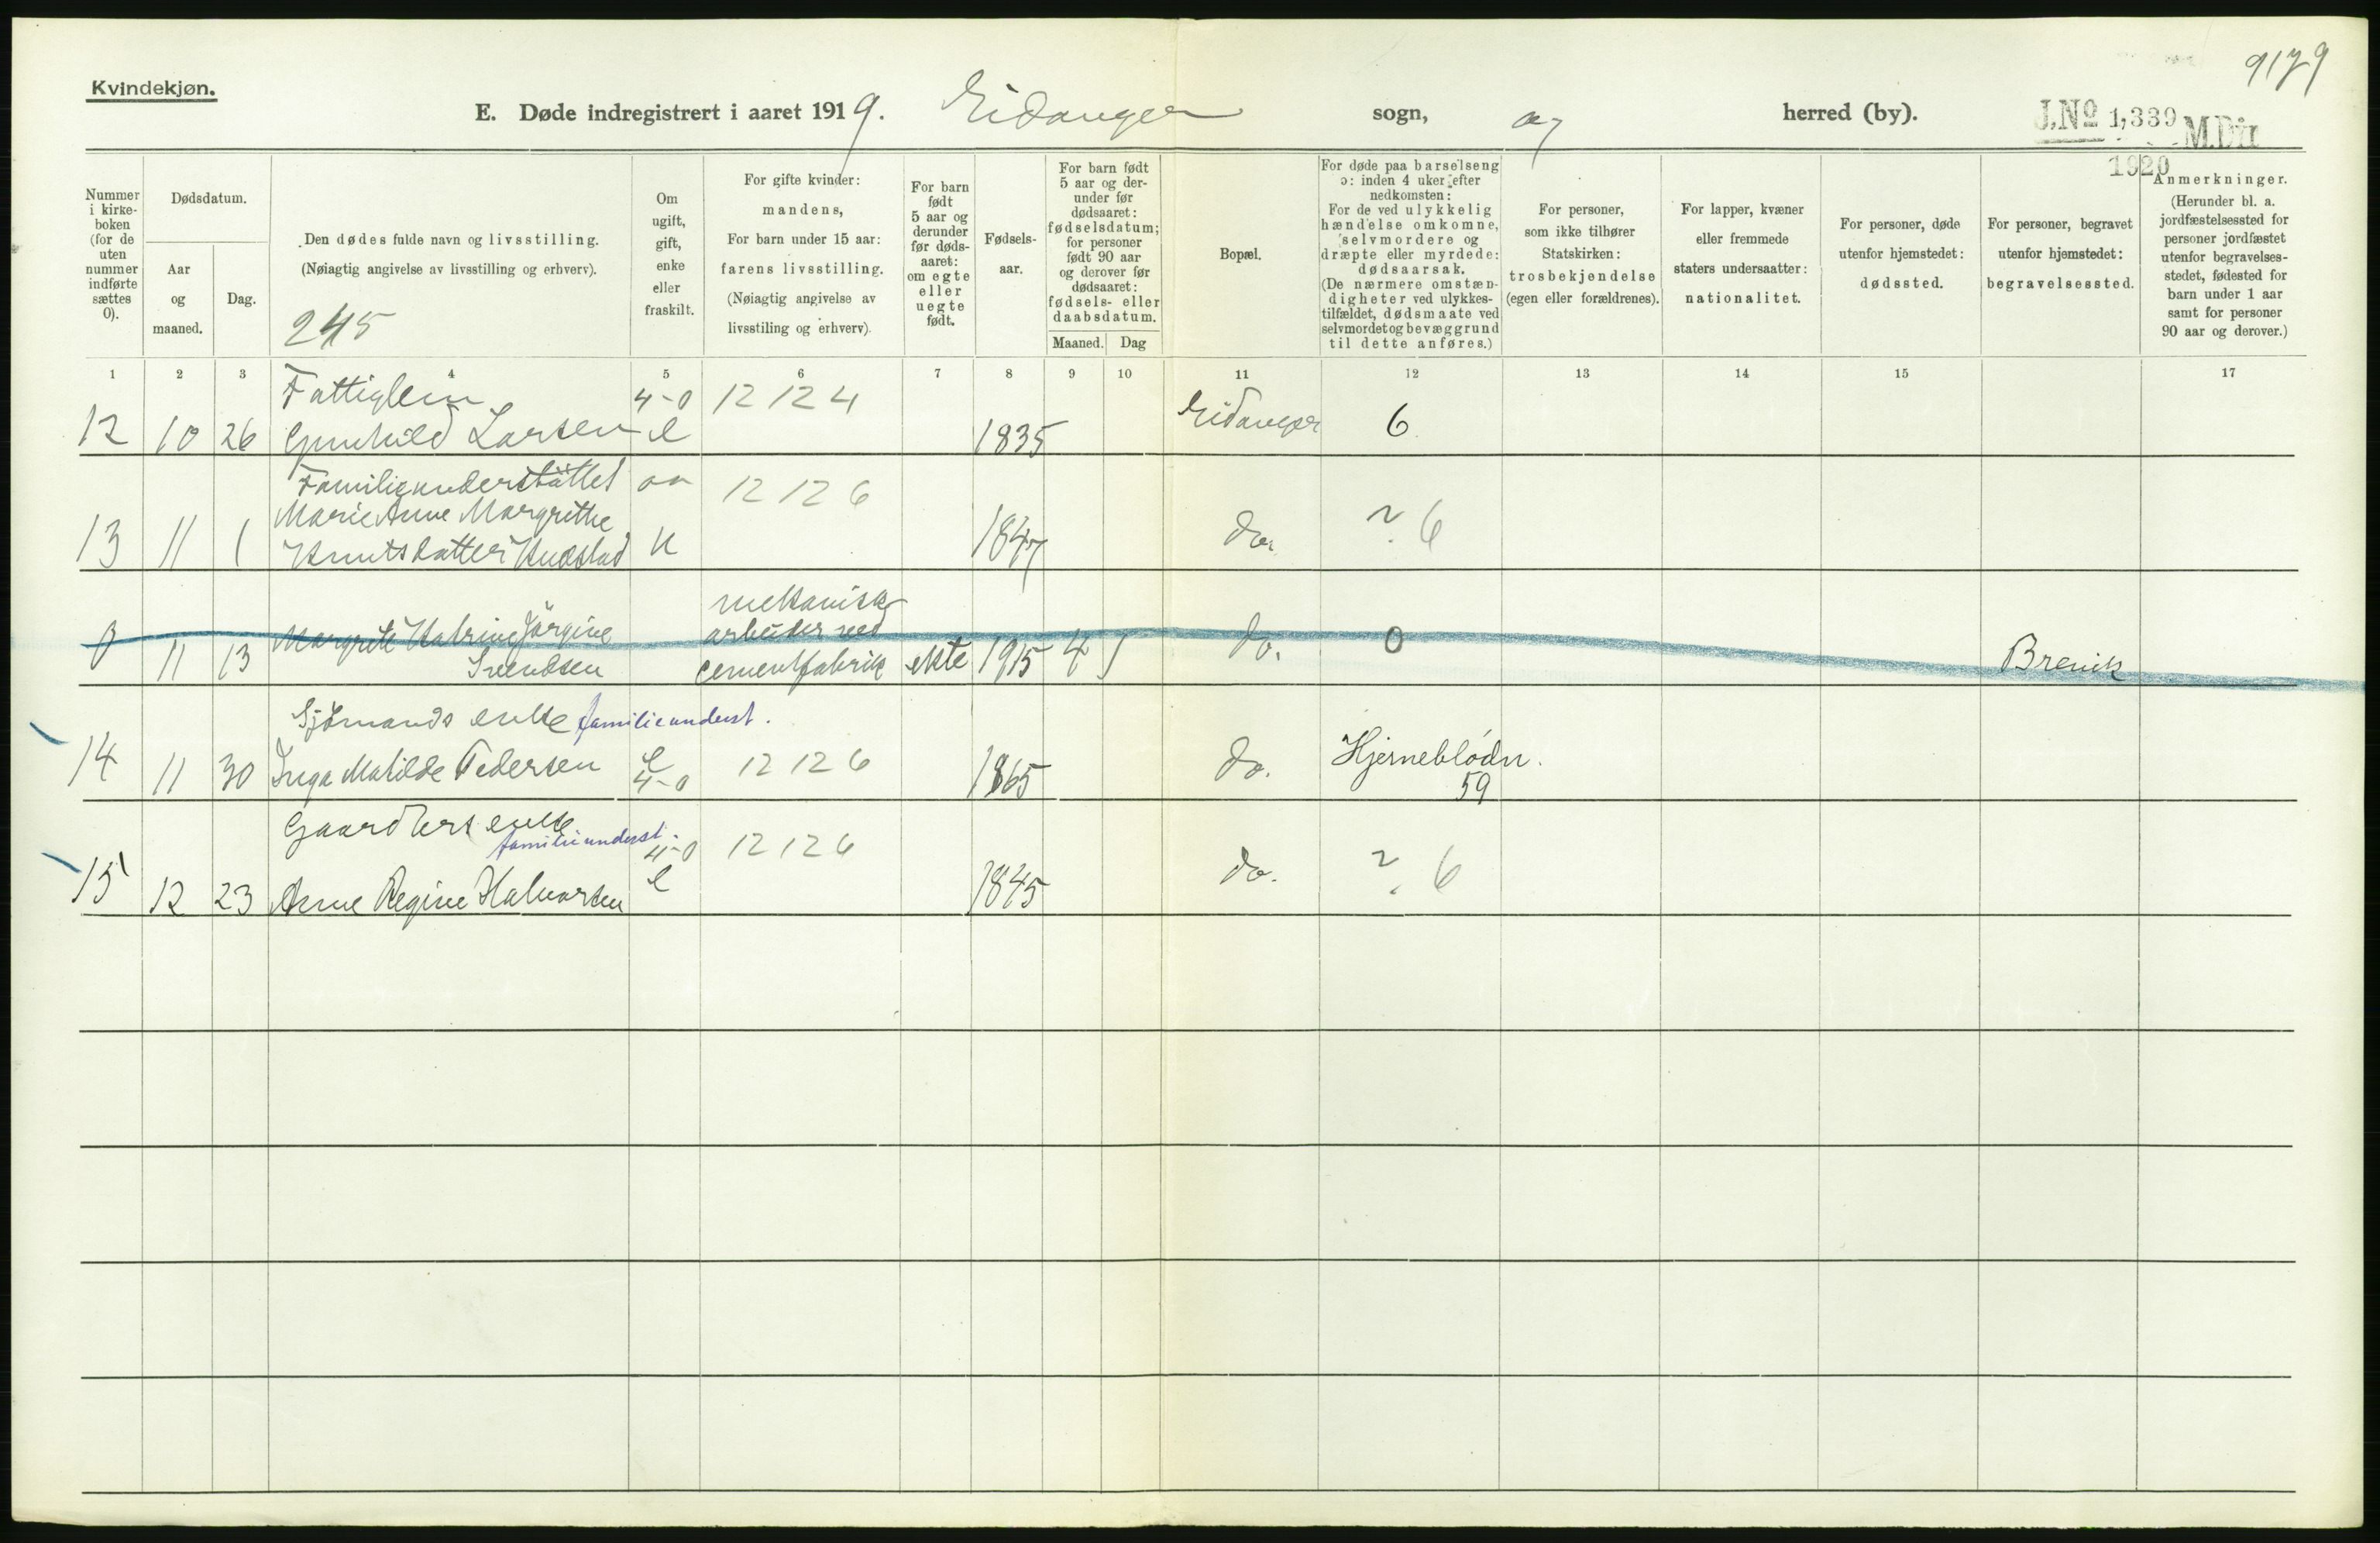 Kvindekjøn.
9179
E. Døde indregistrert i aaret 1919. Eidanger sogn, og herred (by).
J.No 1,339 M.Dir
1920
Nummer i kirke-boken (for de uten nummer indførte sættes 0).
Dødsdatum.
Aar og maaned.
Dag.
Den dødes fulde navn og livsstilling.
(Nøiagtig angivelse av livsstilling og erhverv).
245
Om ugift, gift, enke eller fraskilt.
For gifte kvinder: mandens,
For barn under 15 aar: farens livsstilling.
(Nøiagtig angivelse av livsstiling og erhverv).
For barn født 5 aar og derunder før døds-aaret: om egte eller uegte født.
Fødsels-aar.
For barn født 5 aar og der-under før dødsaaret: fødselsdatum; for personer født 90 aar og derover før dødsaaret: fødsels- eller daabsdatum.
Maaned. Dag
Bopæl.
For døde paa barselseng ɔ: inden 4 uker efter nedkomsten:
For de ved ulykkelig hændelse omkomne, selvmordere og dræpte eller myrdede: dødsaarsak.
(De nærmere omstæn-digheter ved ulykkes-tilfældet, dødsmaate ved selvmordet og bevæggrund til dette anføres.)
For personer, som ikke tilhører Statskirken: trosbekjendelse (egen eller forældrenes).
For lapper, kvæner eller fremmede staters undersaatter: nationalitet.
For personer, døde utenfor hjemstedet: dødssted.
For personer, begravet utenfor hjemstedet: begravelsessted.
Anmerkninger.
(Herunder bl. a. jordfæstelsessted for personer jordfæstet utenfor begravelses-stedet, fødested for barn under 1 aar samt for personer 90 aar og derover.)
1 2 3 4 5 6 7 8 9 10 11 12 13 14 15 17
Fattiglem 4-0 12 12 4
12 10 26 Gunhild Larsen e 1835 Eidanger 6
Familieunderstöttet 12 12 6
Marie Anne Margrethe
13 11 1 Knutsdatter 1847 do. ? 6
mekanisk
0 Margrete Katrine Jörgine arbeider ved do. 0
11 13 Svendsen cementfabrik ekte 1915 4 Brevik
Sjömands enke familieunderst.
14 11 30 Inga Matilde Pedersen e 4-0 12 12 6 1865 do. Hjerneblödn.
59
Gaardbers enke
familieunderst. 4-0 12 12 6
15 12 23 Anne Regine Halvorsen e 1845 do. ? 6